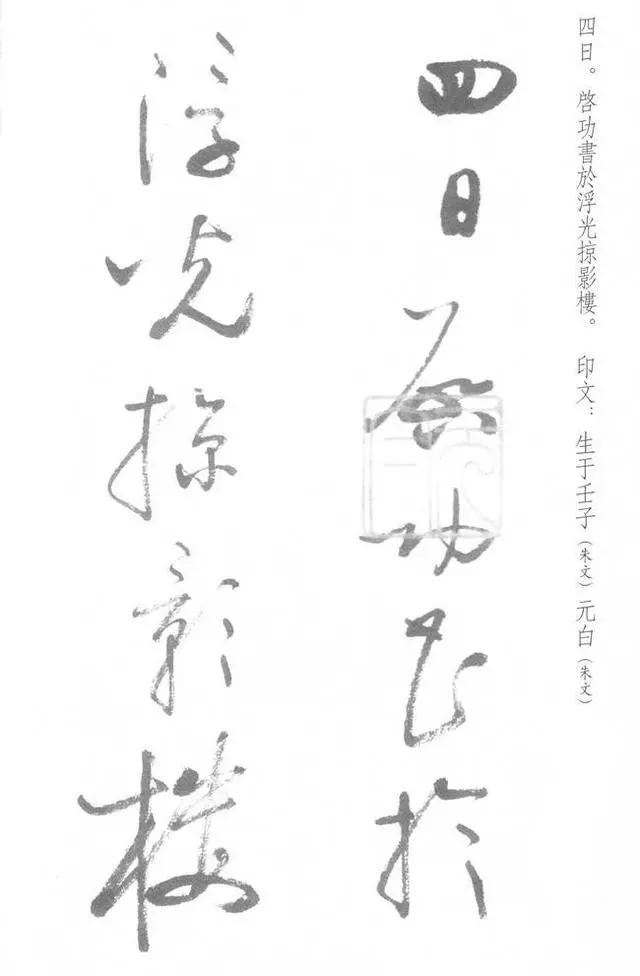 四日。啓功書於浮光掠影樓。 印文：生于壬子（朱文）元白（朱文）
四日啓功書於
浮光掠影樓